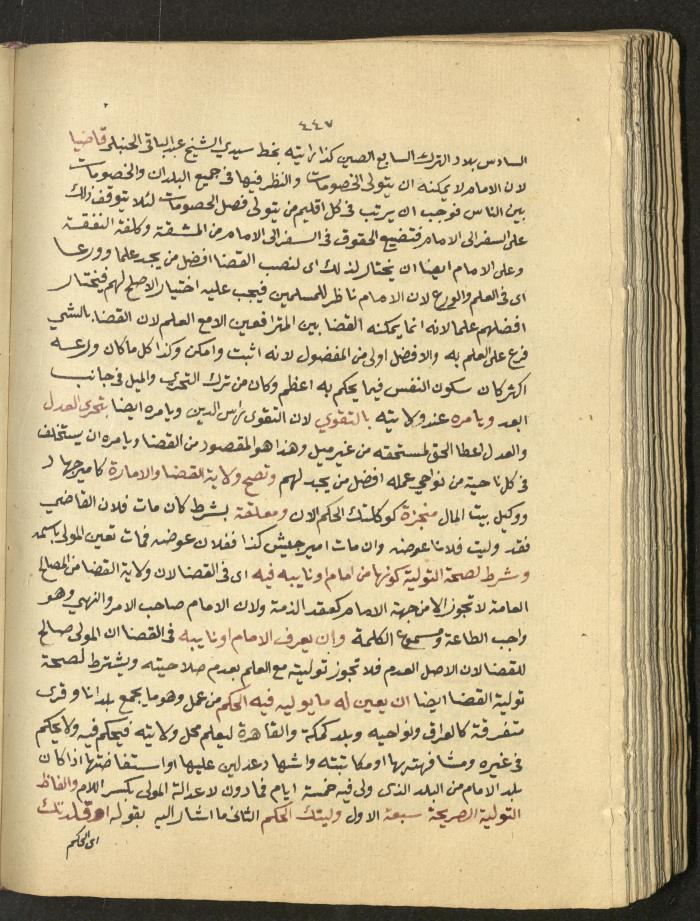 ٤٤٧
السادس بلاد الترك السابع الصين كذا رايته بخط سيدي الشيخ عبد الباقي الحنبلي قاضيا
لان الامام لا يمكنه ان يتولى الخصومات والنظر فيها في جميع البلدان والخصومات
بين الناس فوجب ان يرتب في كل اقليم من يتولى فصل الخصومات لئلا يتوقف ذلك
على السفر الى الامام فتضيع الحقوق في السفر الى الامام من المشقة وكلفة النفقة
وعلى الامام ايضا ان يختار لذلك اى لنصب القضا افضل من يجد علما وورعا
اى في العلم والورع لان الامام ناظر للمسلمين فيجب عليه اختيار الاصلح لهم فيختار
افضلهم علما لانه انما يمكنه القضا بين المترافعين الا مع العلم لان القضا بالشي
فرع على العلم به والافضل اولى من المفضول لانه اثبت وامكن وكذا كل ما كان ورعه
اكثر كان سكون النفس فيما يحكم به اعظم وكان من ترك التحري والميل في جانب
ابعد ويامره عند ولايته بالتقوي لان التقوى راس الدين ويامره ايضا بتحري العدل
والعدل اعطا الحق لمستحقه من غير ميل وهذا هو المقصود من القضا ويامره ان يستخلف
في كل ناحية من نواحي عمله افضل من يجد لهم وتصح ولاية القضا والامارة كامير جهاد
ووكيل بيت المال منجزة كوكلتك الحكم الان ومعلقة بشرط كان مات فلان القاضي
فقد وليت فلانا عوضه وان مات امير جيش كذا ففلان عوضه فمات تعين المولى باسمه
وشرط لصحة التولية كونها من امام او نايبه فيه اى في القضا لان ولاية القضا من المصالح
العامة لا تجوز الا من جهة الامام كعقد الذمة ولان الامام صاحب الامر والنهي وهو
واجب الطاعة ومسموع الكلمة وان يعرف الامام او نايبه في القضا ان المولى صالح
للقضا لان الاصل العدم فلا تجوز توليته مع العلم بعدم صلاحيته ويشترط لصحة
تولية القضا ايضا ان يعين له ما يوليه فيه الحكم من عمل وهو ما يجمع بلدانا وقرى
متفرقة كالعراق ونواحيه وبلد كمكة والقاهرة ليعلم محل ولايته فيحكم فيه ولا يحكم
في غيره ومشافهته بها او مكاتبته واشهاد عدلين عليها او استفاضتها اذا كان
بلد الامام من البلد الذى ولى فيه خمسة ايام فما دون لا عدالة المولي بكسر اللام والفاظ
التولية الصريحة سبعة الاول وليتك الحكم الثاني ما اشار اليه بقوله او قلدتك
اى الحكم